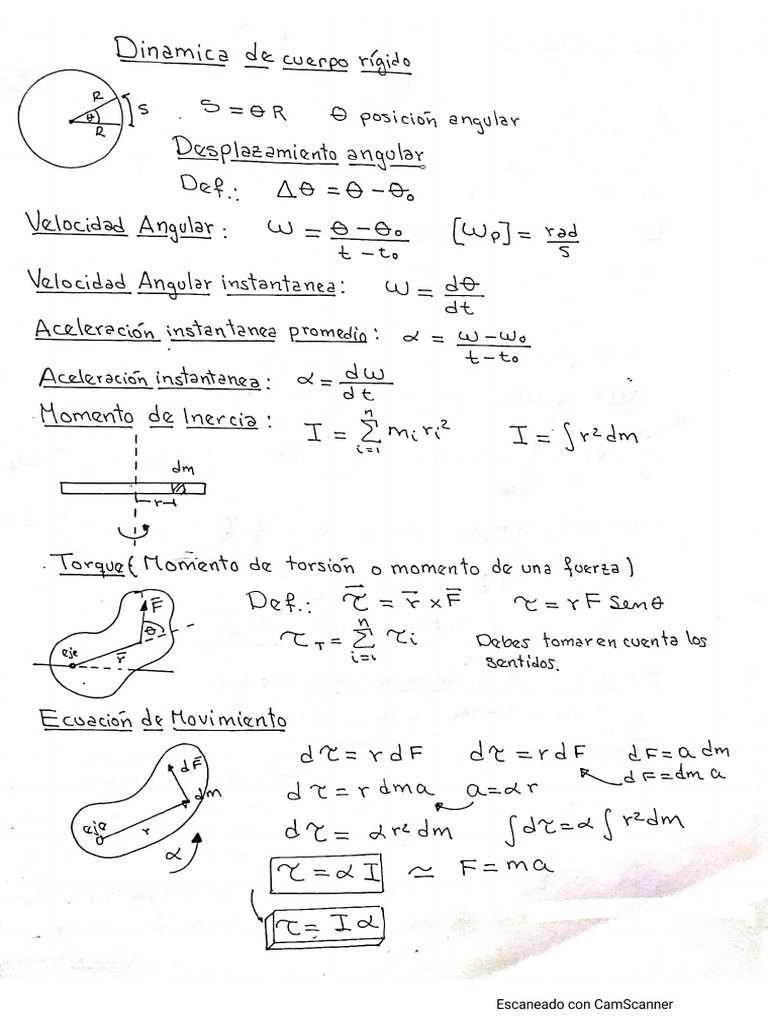 Dinamica de cuerpo rígido
R
θ
R
S
S = θR θ posición angular
Desplazamiento angular
Def.: Δθ = θ - θ₀
Velocidad Angular: ω = θ - θ₀ / t - t₀ [ωp] = rad / s
Velocidad Angular instantanea: ω = dθ / dt
Aceleración instantanea promedio: α = ω - ω₀ / t - t₀
Aceleración instantanea: α = dω / dt
Momento de Inercia: I = Σ (i=1, n) mᵢrᵢ² I = ∫r²dm
dm
r
Torque (Momento de torsión o momento de una fuerza)
F⃗
θ
eje
r⃗
Def.: τ⃗ = r⃗ × F⃗ τ = rF Senθ
τ_T = Σ (i=1, n) τi Debes tomar en cuenta los
sentidos.
Ecuación de Movimiento
dF⃗
dm
eje
r
α
dτ = rdF dτ = rdF dF = a dm
dF = dm a
dτ = rdma a = αr
dτ = αr²dm ∫dτ = α∫r²dm
τ = αI ≃ F = ma
τ = Iα
Escaneado con CamScanner